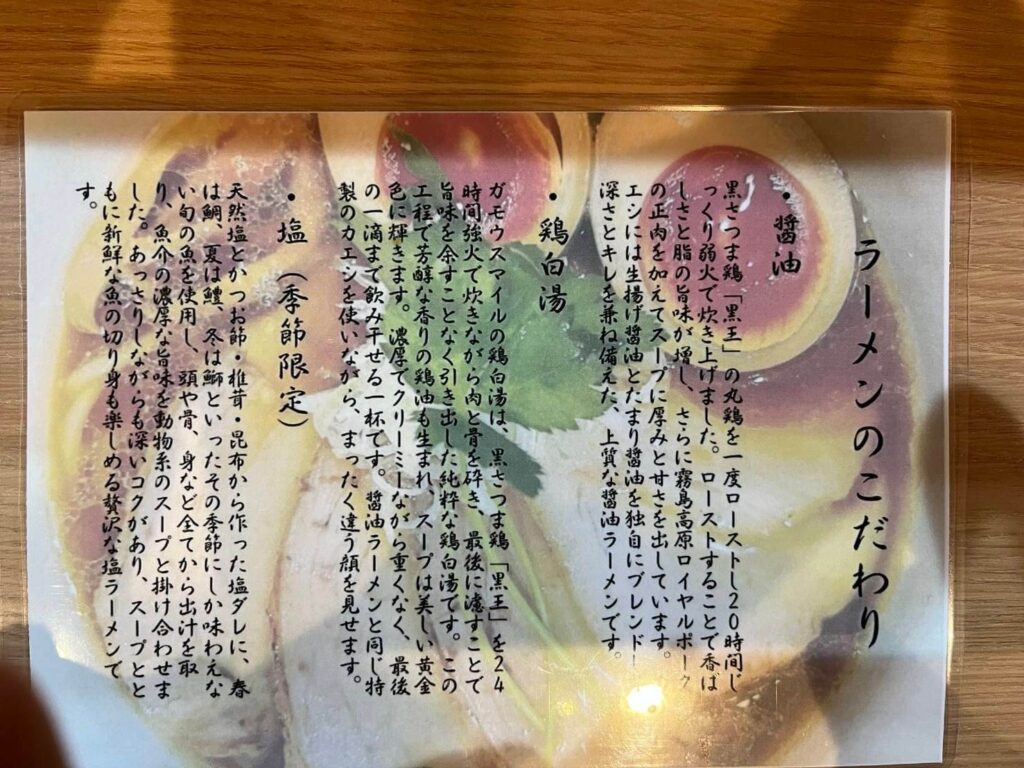 ラーメンのこだわり
・醤油
黒さつま鶏「黒王」の丸鶏を一度ローストし20時間じ
っくり弱火で炊き上げました。ローストすることで香ば
しさと脂の旨味が増し、さらに霧島高原ロイヤルポーク
の正肉を加えてスープに厚みと甘さを出しています。
エシには生揚げ醤油とたまり醤油を独自にブレンド！
深さとキレを兼ね備えた、上質な醤油ラーメンです。
・鶏白湯
ガモウスマイルの鶏白湯は、黒さつま鶏「黒王」を24
時間強火で炊きながら肉と骨を砕き、最後に濾すことで
旨味を余すことなく引き出した純粋な鶏白湯です。この
工程で芳醇な香りの鶏油も生まれ、スープは美しい黄金
色に輝きます。濃厚でクリーミーながら重くなく、最後
の一滴まで飲み干せる一杯です。醤油ラーメンと同じ特
製のカエシを使いながら、まったく違う顔を見せます。
・塩（季節限定）
天然塩とかつお節・椎茸・昆布から作った塩ダレに、春
は鯛、夏は鱧、冬は鰤といったその季節にしか味わえな
い旬の魚を使用し、頭や骨、身など全てから出汁を取
り、魚介の濃厚な旨味を動物系のスープと掛け合わせま
した。あっさりしながらも深いコクがあり、スープとと
もに新鮮な魚の切り身も楽しめる贅沢な塩ラーメンで
す。